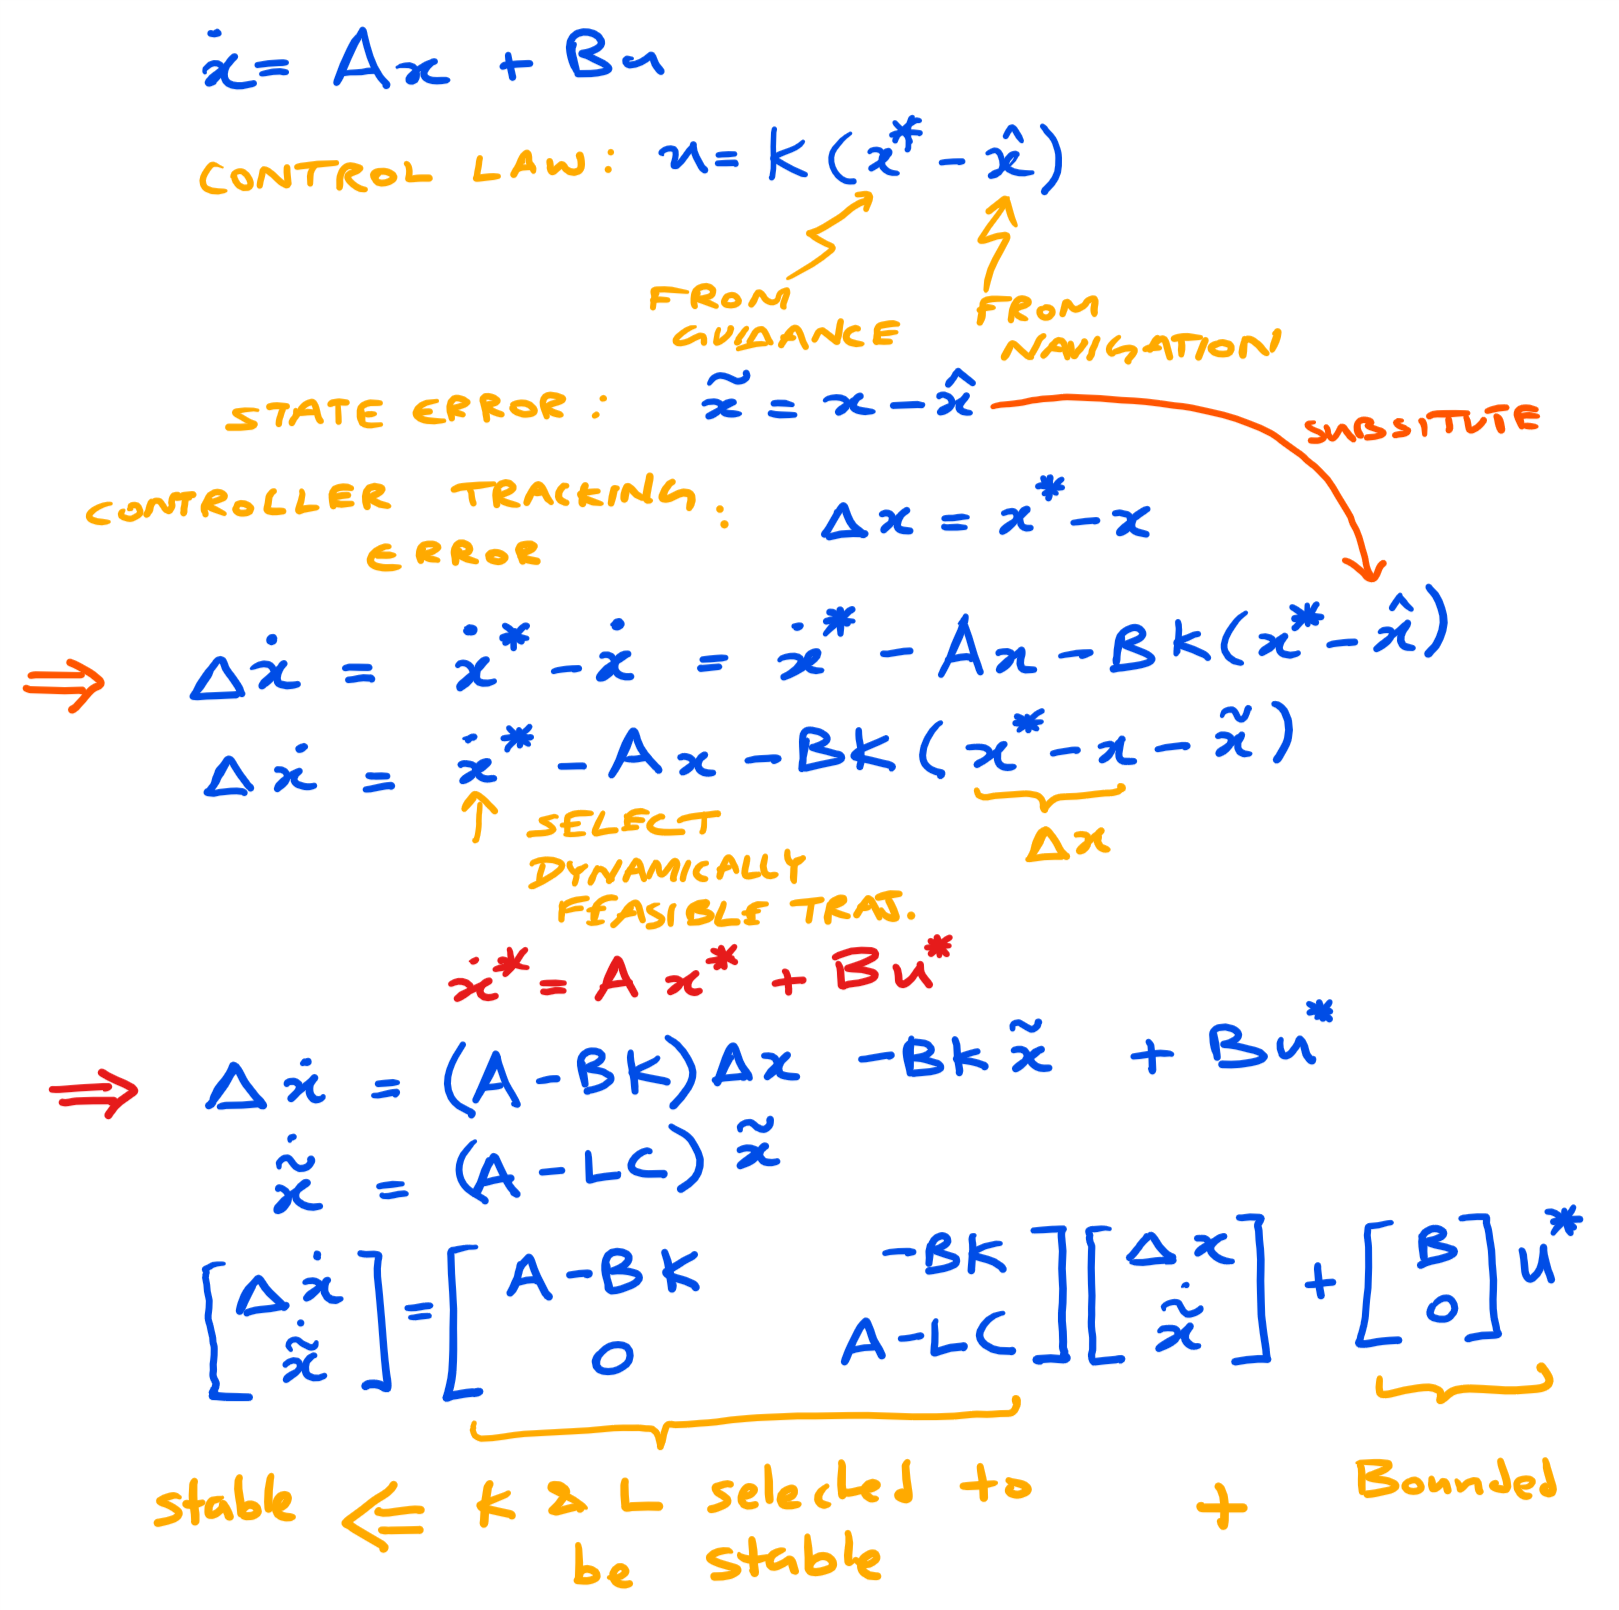 ẋ = Ax + Bu
CONTROL LAW: u = K(x* - x̂)
FROM GUIDANCE
FROM NAVIGATION
STATE ERROR: x̃ = x - x̂
SUBSITUTE
CONTROLLER TRACKING ERROR: Δx = x* - x
⇒ Δẋ = ẋ* - ẋ = ẋ* - Ax - BK(x* - x̂)
Δẋ = ẋ* - Ax - BK(x* - x - x̃)
Δx
↑ SELECT
DYNAMICALLY
FEASIBLE TRAJ.
ẋ* = Ax* + Bu*
⇒ Δẋ = (A - BK)Δx - BKx̃ + Bu*
x̃̇ = (A - LC)x̃
[Δẋ; x̃̇] = [A - BK, -BK; 0, A - LC][Δx; x̃̇] + [B; 0]u*
stable ⇐ K & L selected to be stable + Bounded